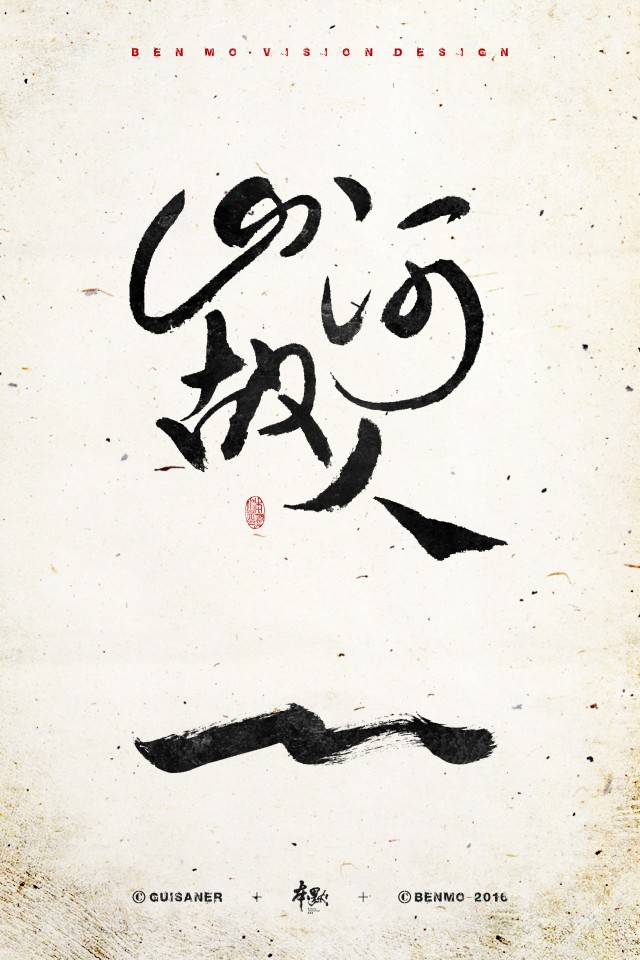 BEN MO·VISION DESIGN
山河
故人
©GUISANER + 本墨 + ©BENMO-2016